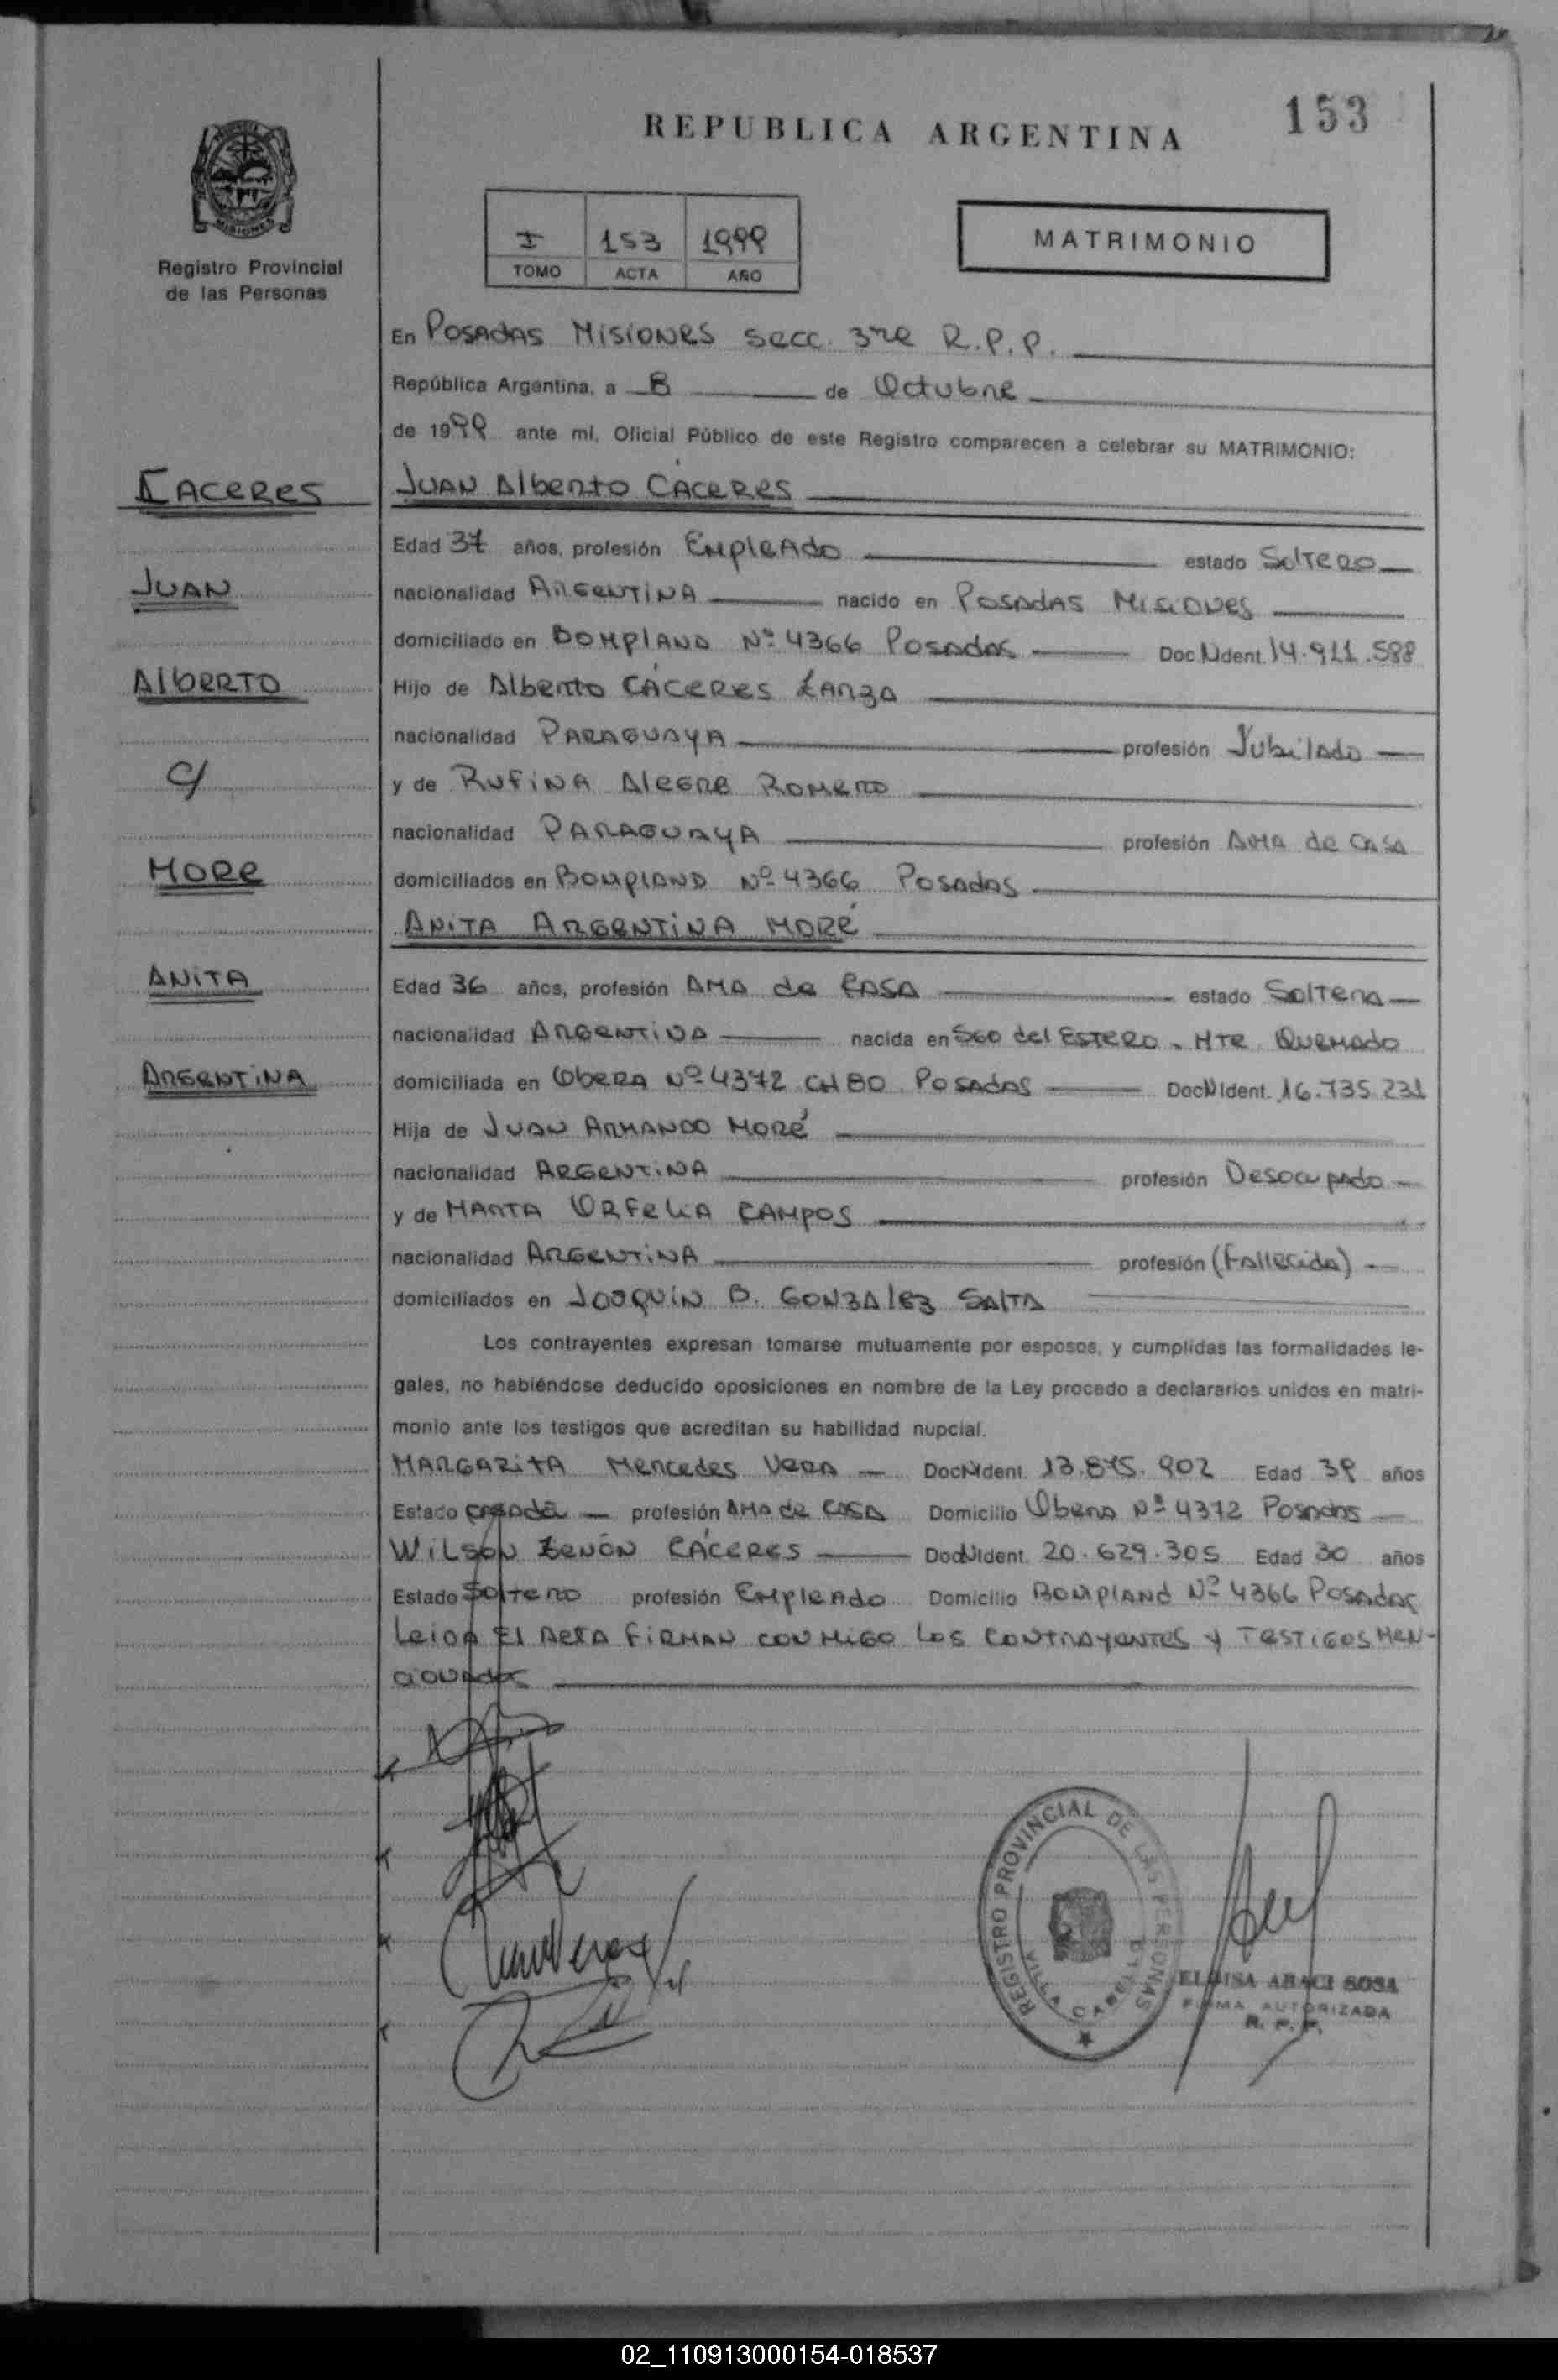 153
REPUBLICA ARGENTINA
I 153 1999
TOMO ACTA AÑO
MATRIMONIO
MISIONES
Registro Provincial
de las Personas
En POSADAS MISIONES SECC. 3ra R.P.P.
República Argentina, a 8 de Octubre
de 1999 ante mi, Oficial Público de este Registro comparecen a celebrar su MATRIMONIO:
CACERES
JUAN Alberto CACERES
Edad 37 años, profesión EMPLEADO estado SOLTERO
JUAN
nacionalidad ARGENTINA nacido en POSADAS MISIONES
domiciliado en BOMPLAND Nº 4366 POSADAS Doc.N Ident. 14.911.588
AlbERTO
Hijo de Alberto CÁCERES LARZA
nacionalidad PARAGUAYA profesión Jubilado
C/
y de RUFINA ALEGRE ROMERO
nacionalidad PARAGUAYA profesión AMA de CASA
MORE
domiciliados en BOMPLAND Nº 4366 POSADAS
ANITA ARGENTINA MORÉ
ANITA
Edad 36 años, profesión AMA de CASA estado SOLTERA
nacionalidad ARGENTINA nacida en SGO del ESTERO - MTE QUEMADO
ARGENTINA
domiciliada en OBERA Nº 4372 CH 80 POSADAS Doc N Ident. 16.735.231
Hija de JUAN ARMANDO MORÉ
nacionalidad ARGENTINA profesión Desocupado
y de MARTA ORFELIA CAMPOS
nacionalidad ARGENTINA profesión (FALLECIDA)
domiciliados en JOAQUÍN B. GONZALEZ SALTA
Los contrayentes expresan tomarse mutuamente por esposos, y cumplidas las formalidades le-
gales, no habiéndose deducido oposiciones en nombre de la Ley procedo a declararlos unidos en matri-
monio ante los testigos que acreditan su habilidad nupcial.
MARGARITA Mercedes VERA Doc N Ident. 13.875.902 Edad 39 años
Estado casada profesión AMA de CASA Domicilio Obera Nº 4372 POSADAS
WILSON ZENÓN CÁCERES Doc N Ident. 20.629.305 Edad 30 años
Estado SOLTERO profesión EMPLEADO Domicilio BOMPLAND Nº 4366 POSADAS
Leida El ACTA FIRMAN CONMIGO LOS CONTRAYENTES Y TESTIGOS MEN-
CIONADOS
REGISTRO PROVINCIAL DE LAS PERSONAS
ELOISA ARACI SOSA
FIRMA AUTORIZADA
R. P. P.
02_110913000154-018537